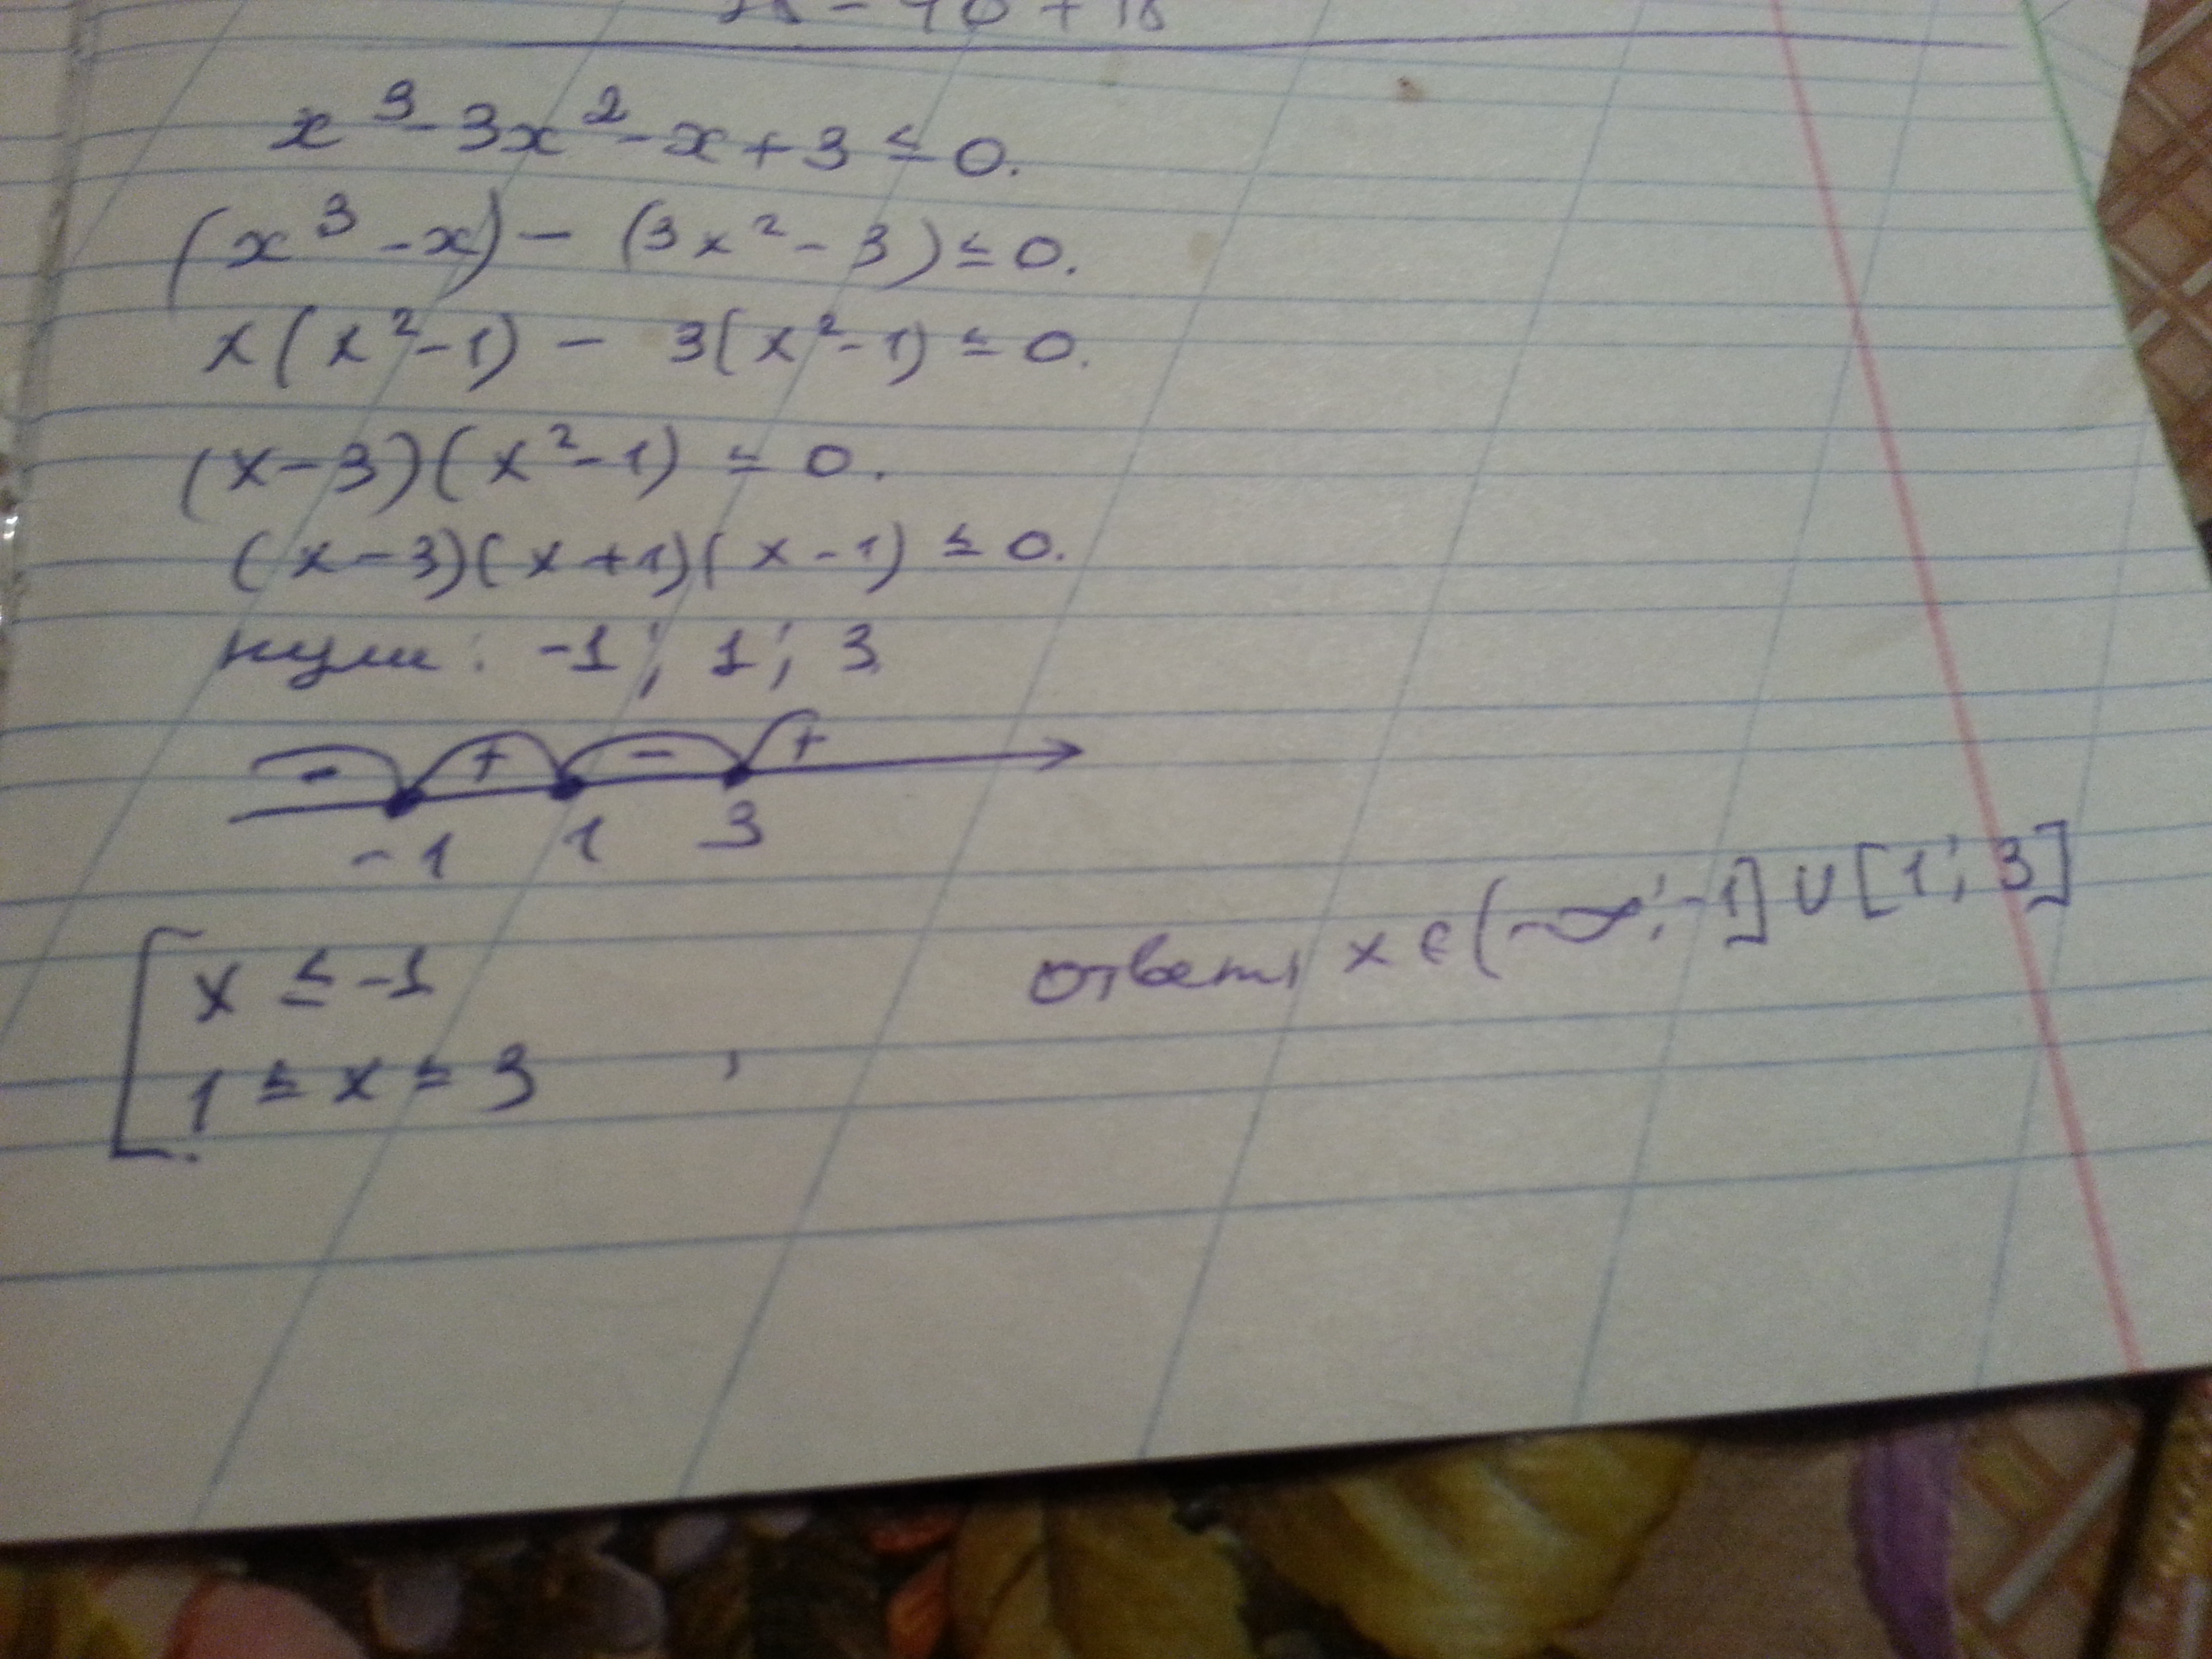 x³ - 3x² - x + 3 ≤ 0.
(x³ - x) - (3x² - 3) ≤ 0.
x(x² - 1) - 3(x² - 1) ≤ 0.
(x - 3)(x² - 1) ≤ 0.
(x - 3)(x + 1)(x - 1) ≤ 0.
нули: -1; 1; 3
- + - +
-1 1 3
x ≤ -1
1 ≤ x ≤ 3
ответ, x ∈ (-∞; -1] ∪ [1; 3]